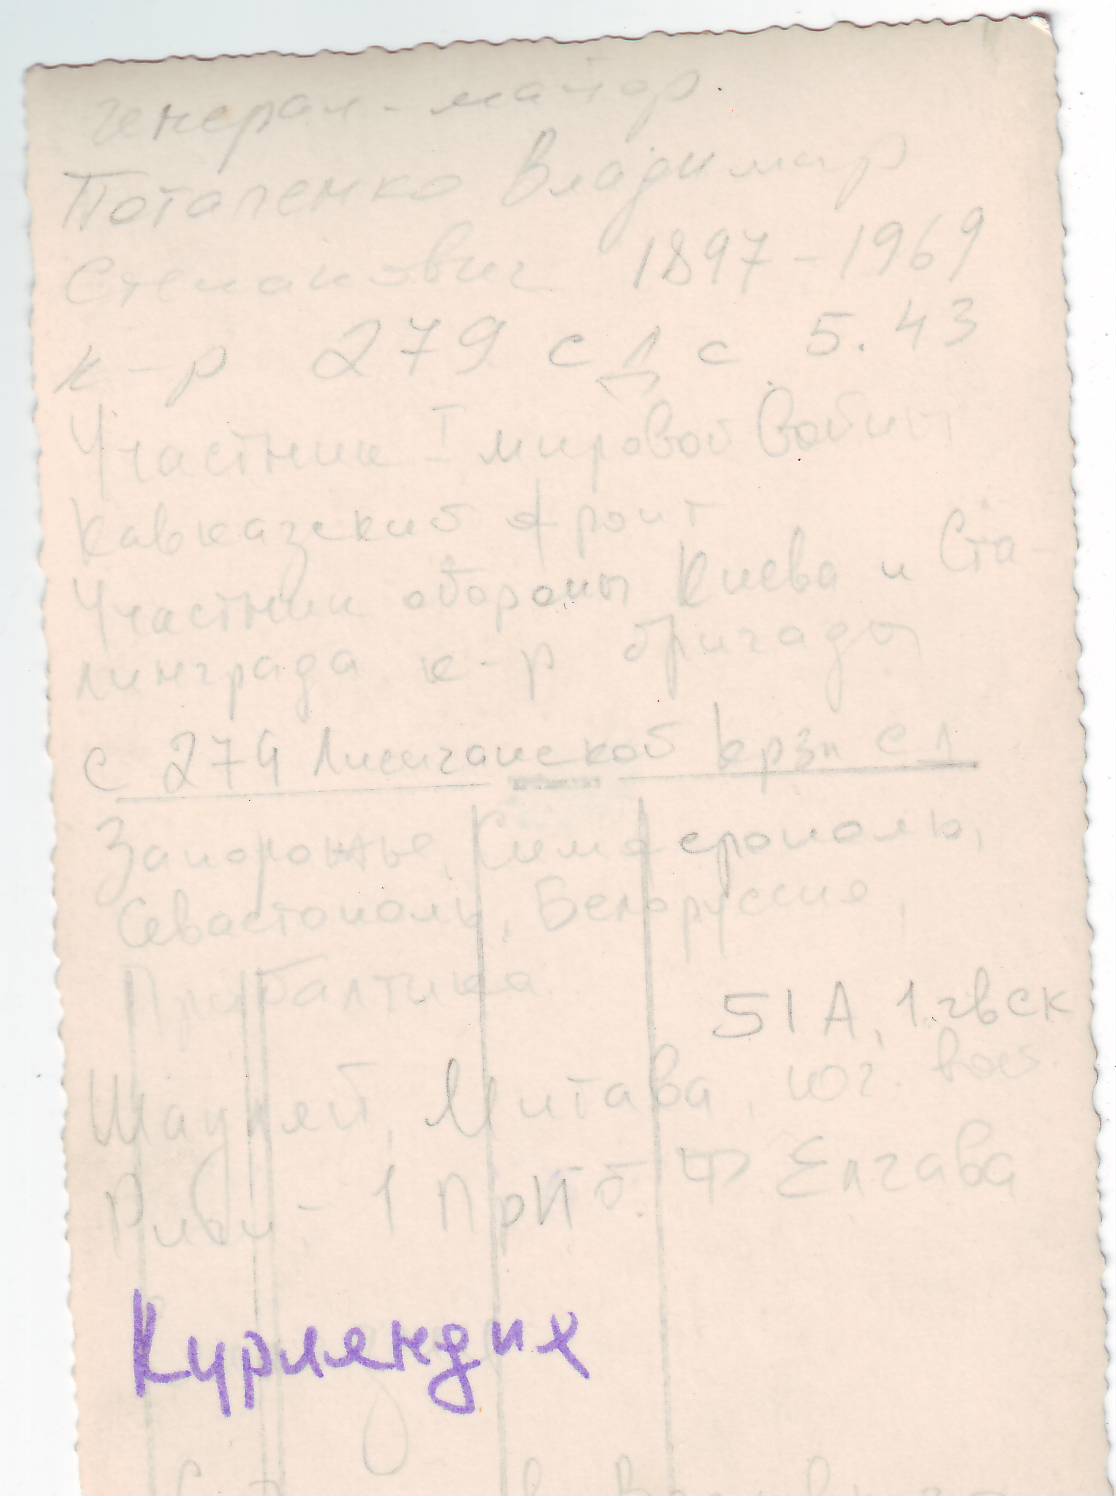 генерал-майор
Потапенко Владимир
Степанович 1897-1969
к-р 279 сд с 5.43
Участник I мировой войны
Кавказский фронт
Участник обороны Киева и Ста-
линграда к-р бригады
с 279 Лисичанской крзн сд
Запорожье, Симферополь,
Севастополь, Белоруссия,
Прибалтика
51А, 1.гвск
Шауляй, Митава, юг.
1 Приб. Ф Елгава
Курляндия